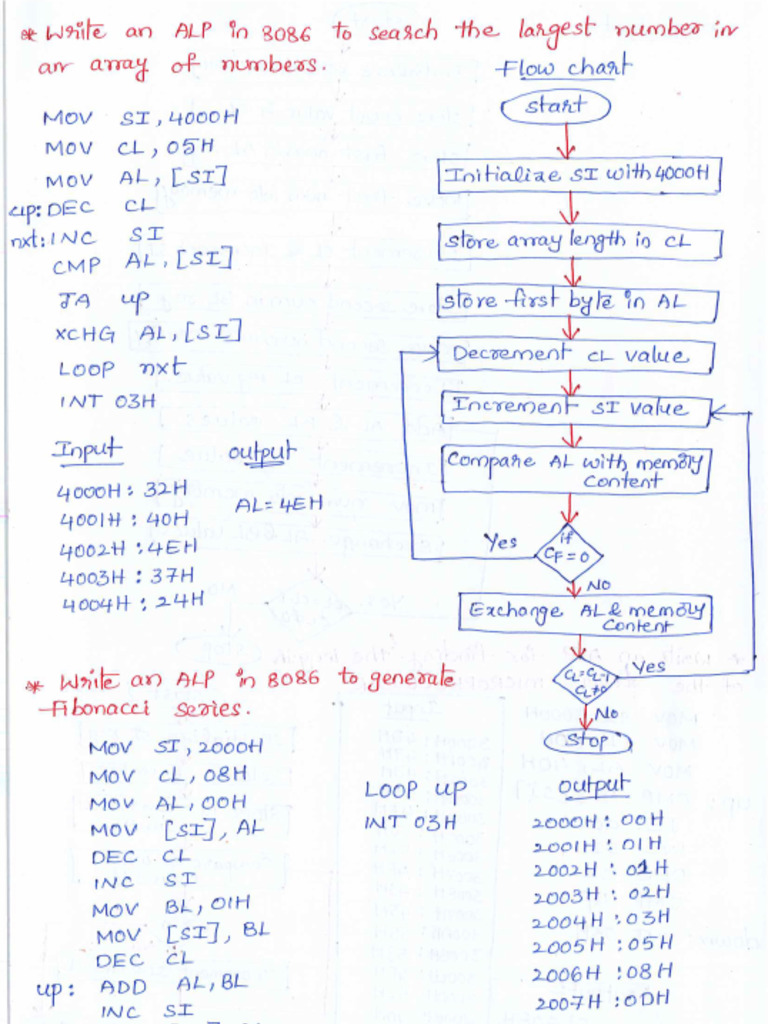 * Write an ALP in 8086 to search the largest number in
an array of numbers.
MOV SI, 4000H
MOV CL, 05H
MOV AL, [SI]
up: DEC CL
nxt: INC SI
CMP AL, [SI]
JA up
XCHG AL, [SI]
LOOP nxt
INT 03H
Input
4000H : 32H
4001H : 40H
4002H : 4EH
4003H : 37H
4004H : 24H
output
AL = 4EH
Flow chart
Start
Initialize SI with 4000H
store array length in CL
store first byte in AL
Decrement CL value
Increment SI value
Compare AL with memory
content
if
CF=0
Yes
No
Exchange AL & memory
content
CL=CL-1
CL≠0
Yes
No
Stop
* Write an ALP in 8086 to generate
Fibonacci series.
MOV SI, 2000H
MOV CL, 08H
MOV AL, 00H
MOV [SI], AL
DEC CL
INC SI
MOV BL, 01H
MOV [SI], BL
DEC CL
up: ADD AL, BL
INC SI
LOOP up
INT 03H
output
2000H : 00H
2001H : 01H
2002H : 01H
2003H : 02H
2004H : 03H
2005H : 05H
2006H : 08H
2007H : 0DH